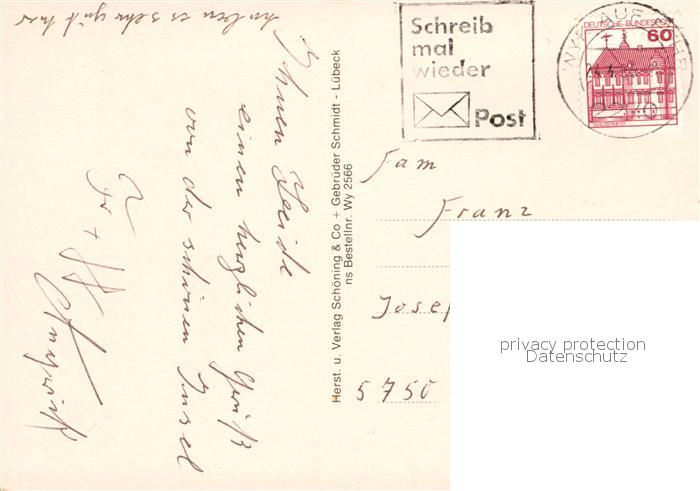 haben es sehr gut hier
Ihnen Beide
einen herzlichen Gruß
von der schönen Insel
Fr +
Herst. u. Verlag Schöning & Co + Gebrüder Schmidt - Lübeck
ns Bestellnr. Wy 2566
Schreib
mal
wieder
Post
DEUTSCHE BUNDESPOST
60
WYK AUF
Fam
Franz
Josef
5750
privacy protection
Datenschutz